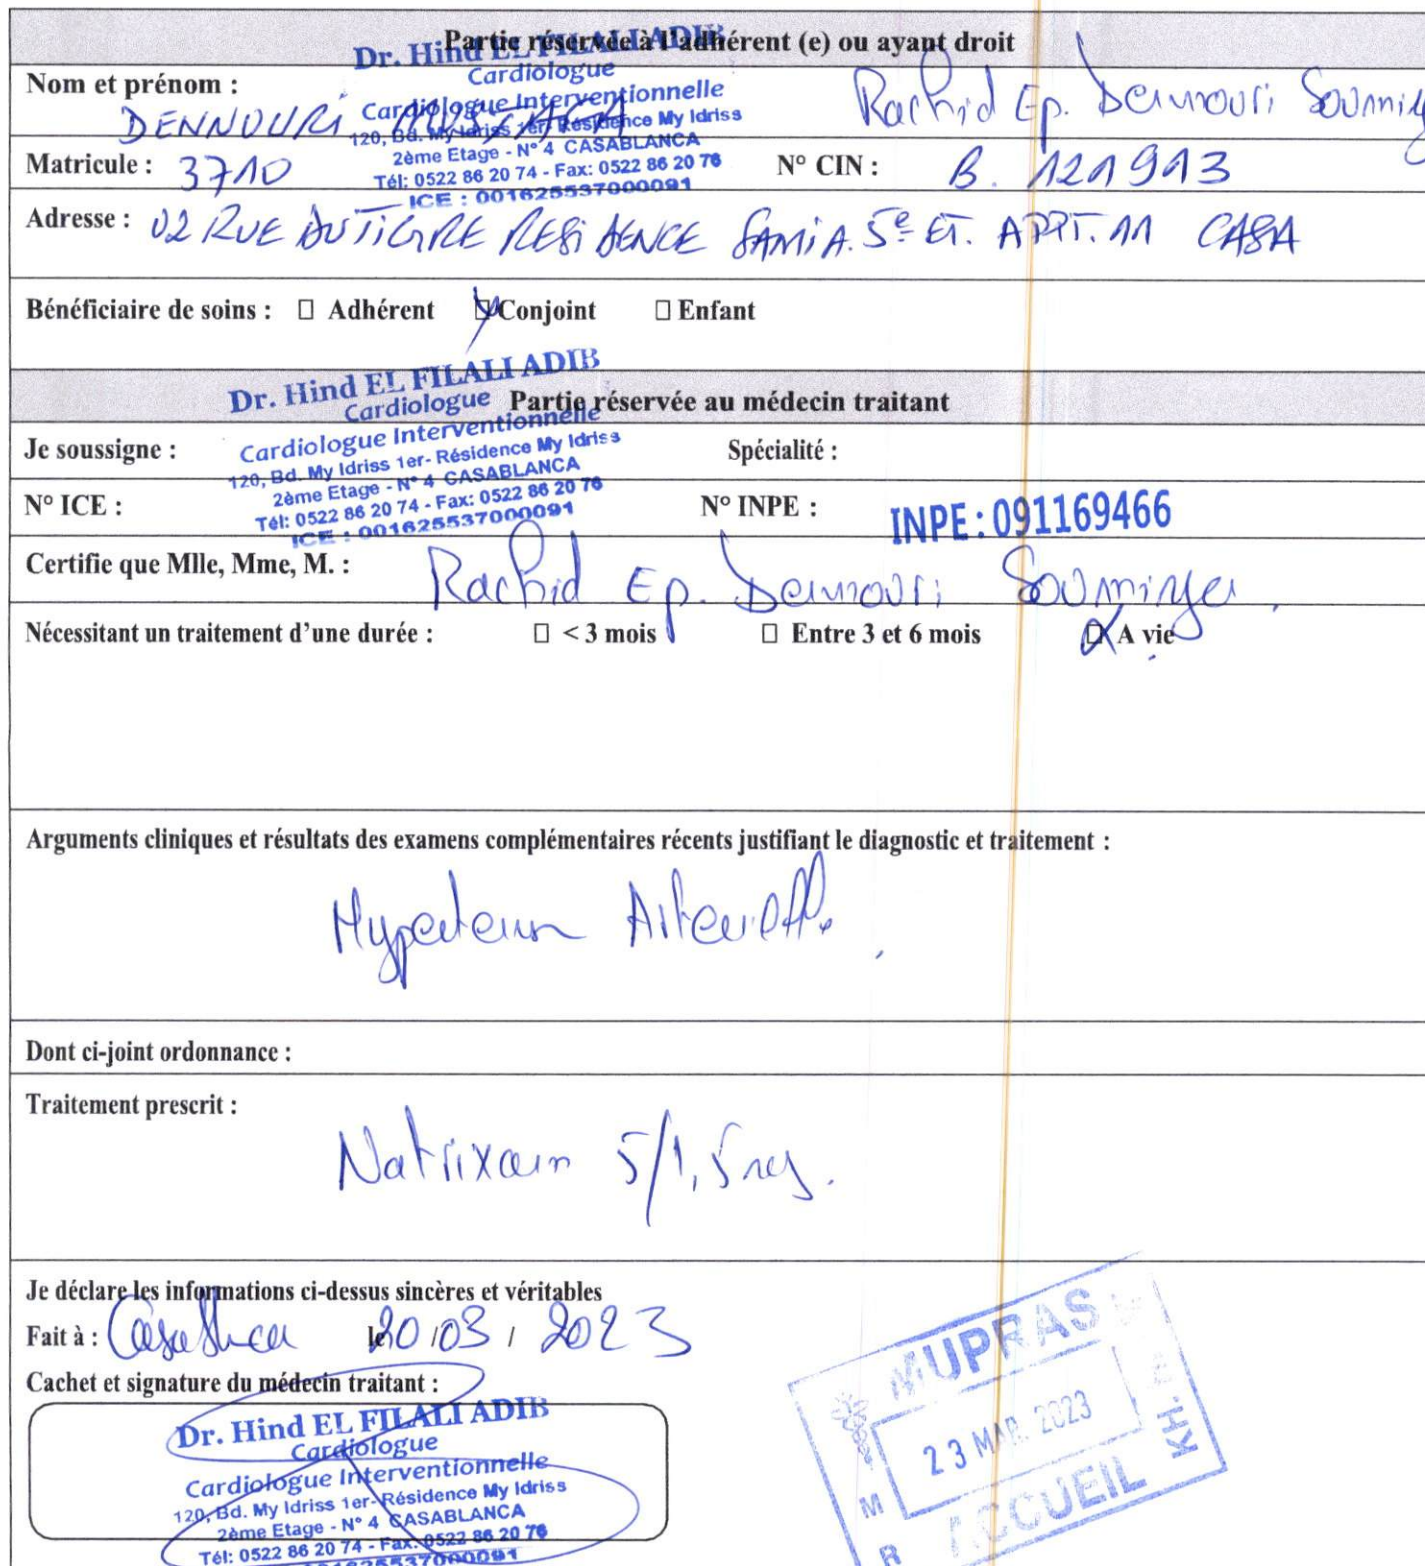 Partie réservée à l'adhérent (e) ou ayant droit
Dr. Hind EL FILALI ADIB
Cardiologue
Cardiologue Interventionnelle
120, Bd. My Idriss 1er- Résidence My Idriss
2ème Etage - N° 4 CASABLANCA
Tél: 0522 86 20 74 - Fax: 0522 86 20 76
ICE : 001625537000091
Nom et prénom : DENNOURI Rachid Ep. Dennouri
Matricule : 3710 N° CIN : B. 121913
Adresse : 02 RUE DU TIGRE RESIDENCE SAMIA. 5e ET. APPT. 11 CASA
Bénéficiaire de soins : Adhérent Conjoint Enfant
Partie réservée au médecin traitant
Dr. Hind EL FILALI ADIB
Cardiologue
Cardiologue Interventionnelle
120, Bd. My Idriss 1er- Résidence My Idriss
2ème Etage - N° 4 CASABLANCA
Tél: 0522 86 20 74 - Fax: 0522 86 20 76
ICE : 001625537000091
Je soussigne : Spécialité :
N° ICE : N° INPE : INPE : 091169466
Certifie que Mlle, Mme, M. : Rachid Ep. Dennouri
Nécessitant un traitement d'une durée : < 3 mois Entre 3 et 6 mois A vie
Arguments cliniques et résultats des examens complémentaires récents justifiant le diagnostic et traitement :
Hypertension Artérielle.
Dont ci-joint ordonnance :
Traitement prescrit :
Natrixam 5/1,5 mg.
Je déclare les informations ci-dessus sincères et véritables
Fait à : Casablanca le 20 / 03 / 2023
Cachet et signature du médecin traitant :
Dr. Hind EL FILALI ADIB
Cardiologue
Cardiologue Interventionnelle
120, Bd. My Idriss 1er- Résidence My Idriss
2ème Etage - N° 4 CASABLANCA
Tél: 0522 86 20 74 - Fax: 0522 86 20 76
001625537000091
MUPRAS
23 MAR. 2023
ACCUEIL